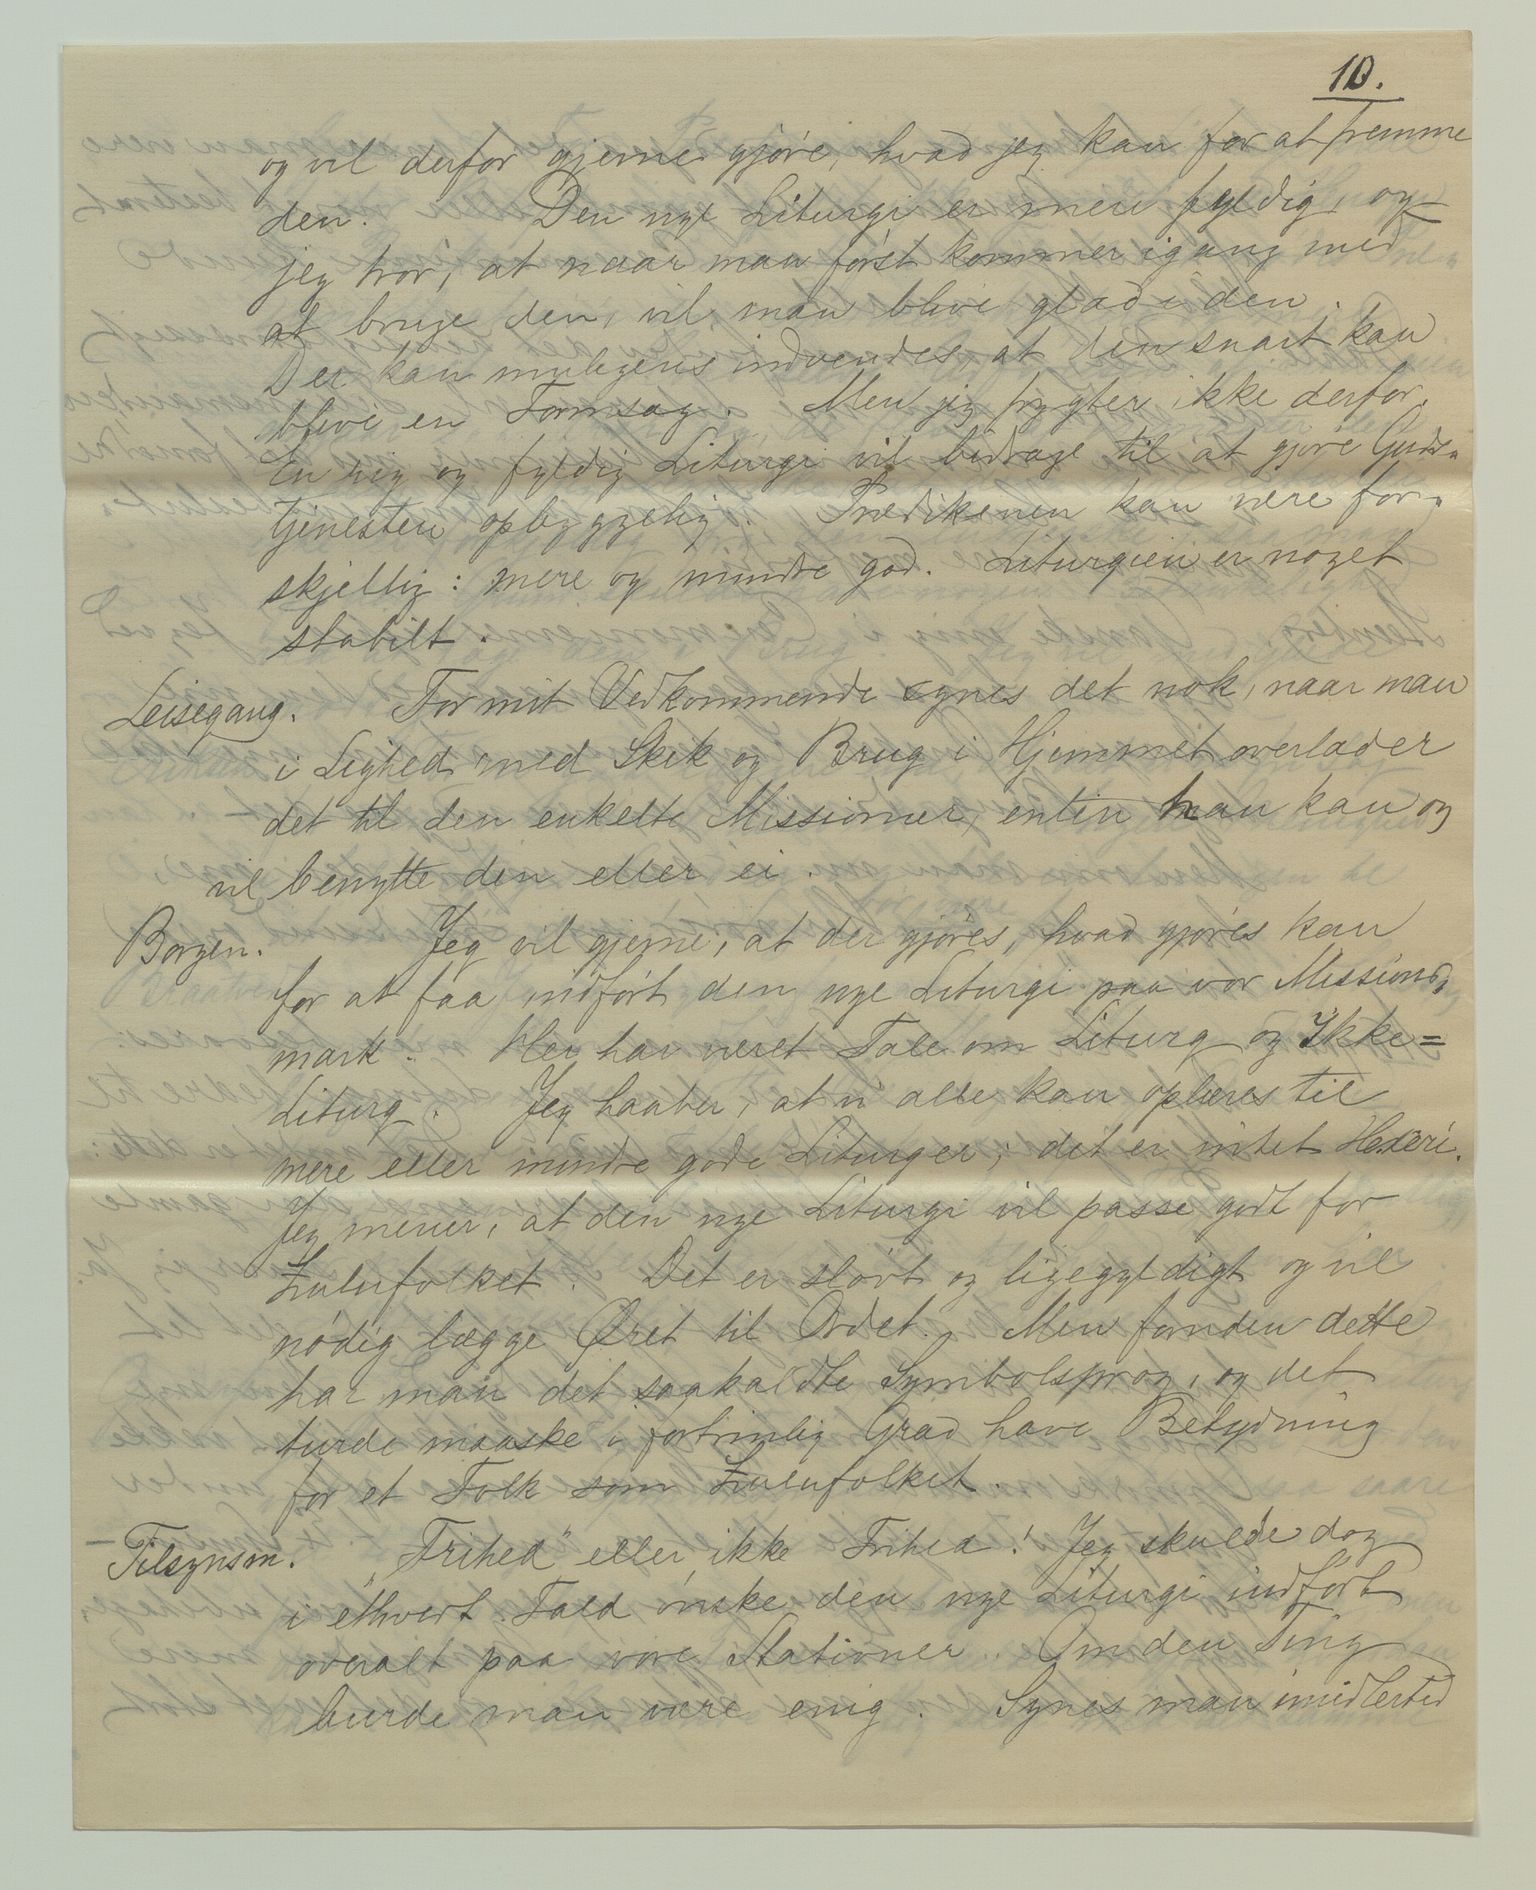 10.
og vil derfor gjerne gjøre, hvad jeg kan for at fremme
den. Den nye Liturgi er mere fyldig, og
jeg tror, at naar man først kommer igang med
at bruge den, vil man blive glad i den.
Der kan muligens indvendes, at den snart kan
blive en Formsag. Men jeg frygter ikke derfor.
En rig og fyldig Liturgi vil bidrage til at gjøre Guds-
tjenesten opbyggelig. Prædikenen kan være for-
skjellig: mere og mindre god. Liturgien er noget
stabilt.
Leisegang. For mit Vedkommende synes det nok, naar man
i Lighed med Skik og Brug i Hjemmet overlader
det til den enkelte Missionær, enten han kan og
vil benytte den eller ei.
Borgen. Jeg vil gjerne, at der gjøres, hvad gjøres kan
for at faa indført den nye Liturgi paa vor Missions-
mark. Her har været Tale om Liturg og Ikke=
Liturg. Jeg haaber, at vi alle kan oplæres til
mere eller mindre gode Liturger; det er intet Hexeri.
Jeg mener, at den nye Liturgi vil passe godt for
Zulufolket. Det er sløvt og ligegyldigt og vil
nødig lægge Øret til Ordet. Men foruden dette
har man det saakaldte Symbolsprog, og det
turde maaske i fortrinlig Grad have Betydning
for et Folk som Zulufolket.
Tilsynsm. "Frihed" eller ikke Frihed! Jeg skulde dog
i ethvert Fald ønske den nye Liturgi indført
overalt paa vore Stationer. Om den Ting
burde man være enig. Synes man imidlertid